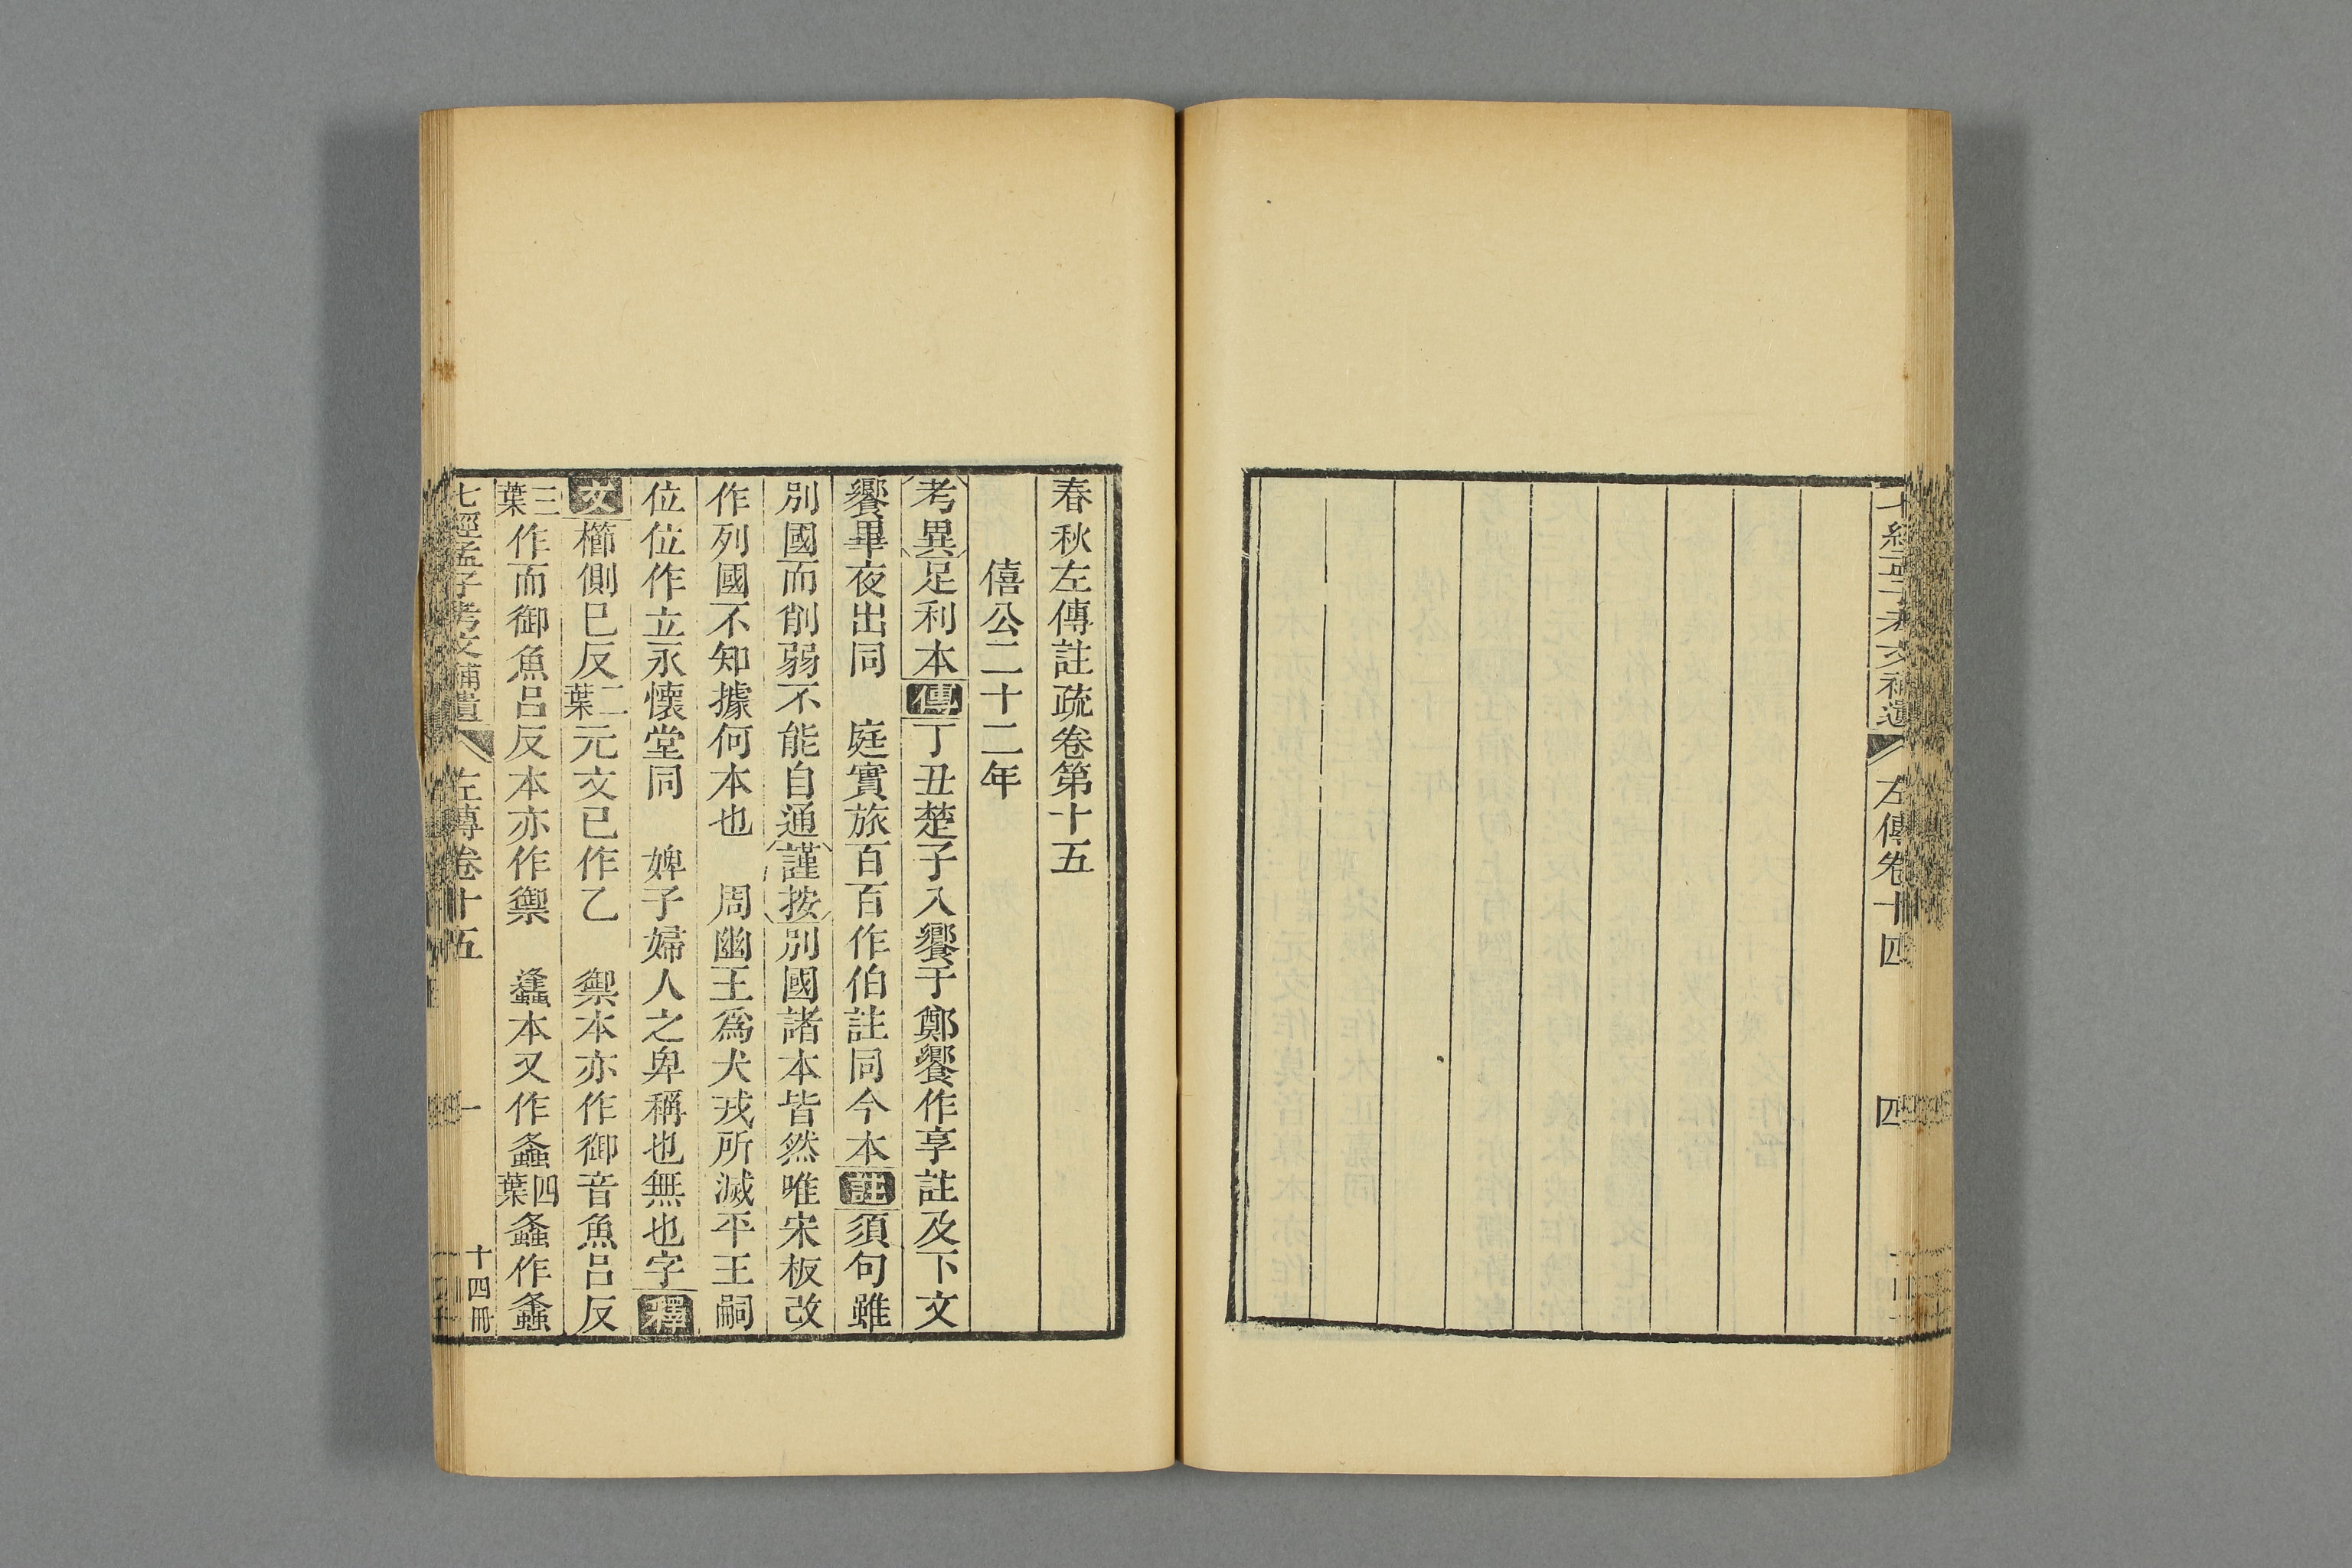 七經孟子考文補遺 左傳卷十四 四
春秋左傳註疏卷第十五
僖公二十二年
考異足利本傳丁丑楚子入饗于鄭饗作享註及下文
饗畢夜出同 庭實旅百百作伯註同今本註須句雖
別國而削弱不能自通謹按別國諸本皆然唯宋板改
作列國不知據何本也 周幽王爲犬戎所滅平王嗣
位位作立永懷堂同 婢子婦人之卑稱也無也字釋
文櫛側巳反二葉元文已作乙 禦本亦作御音魚呂反
三葉作而御魚呂反本亦作禦 蠭本又作螽四葉螽作螽
七經孟子考文補遺 左傳卷十五 一 十四冊